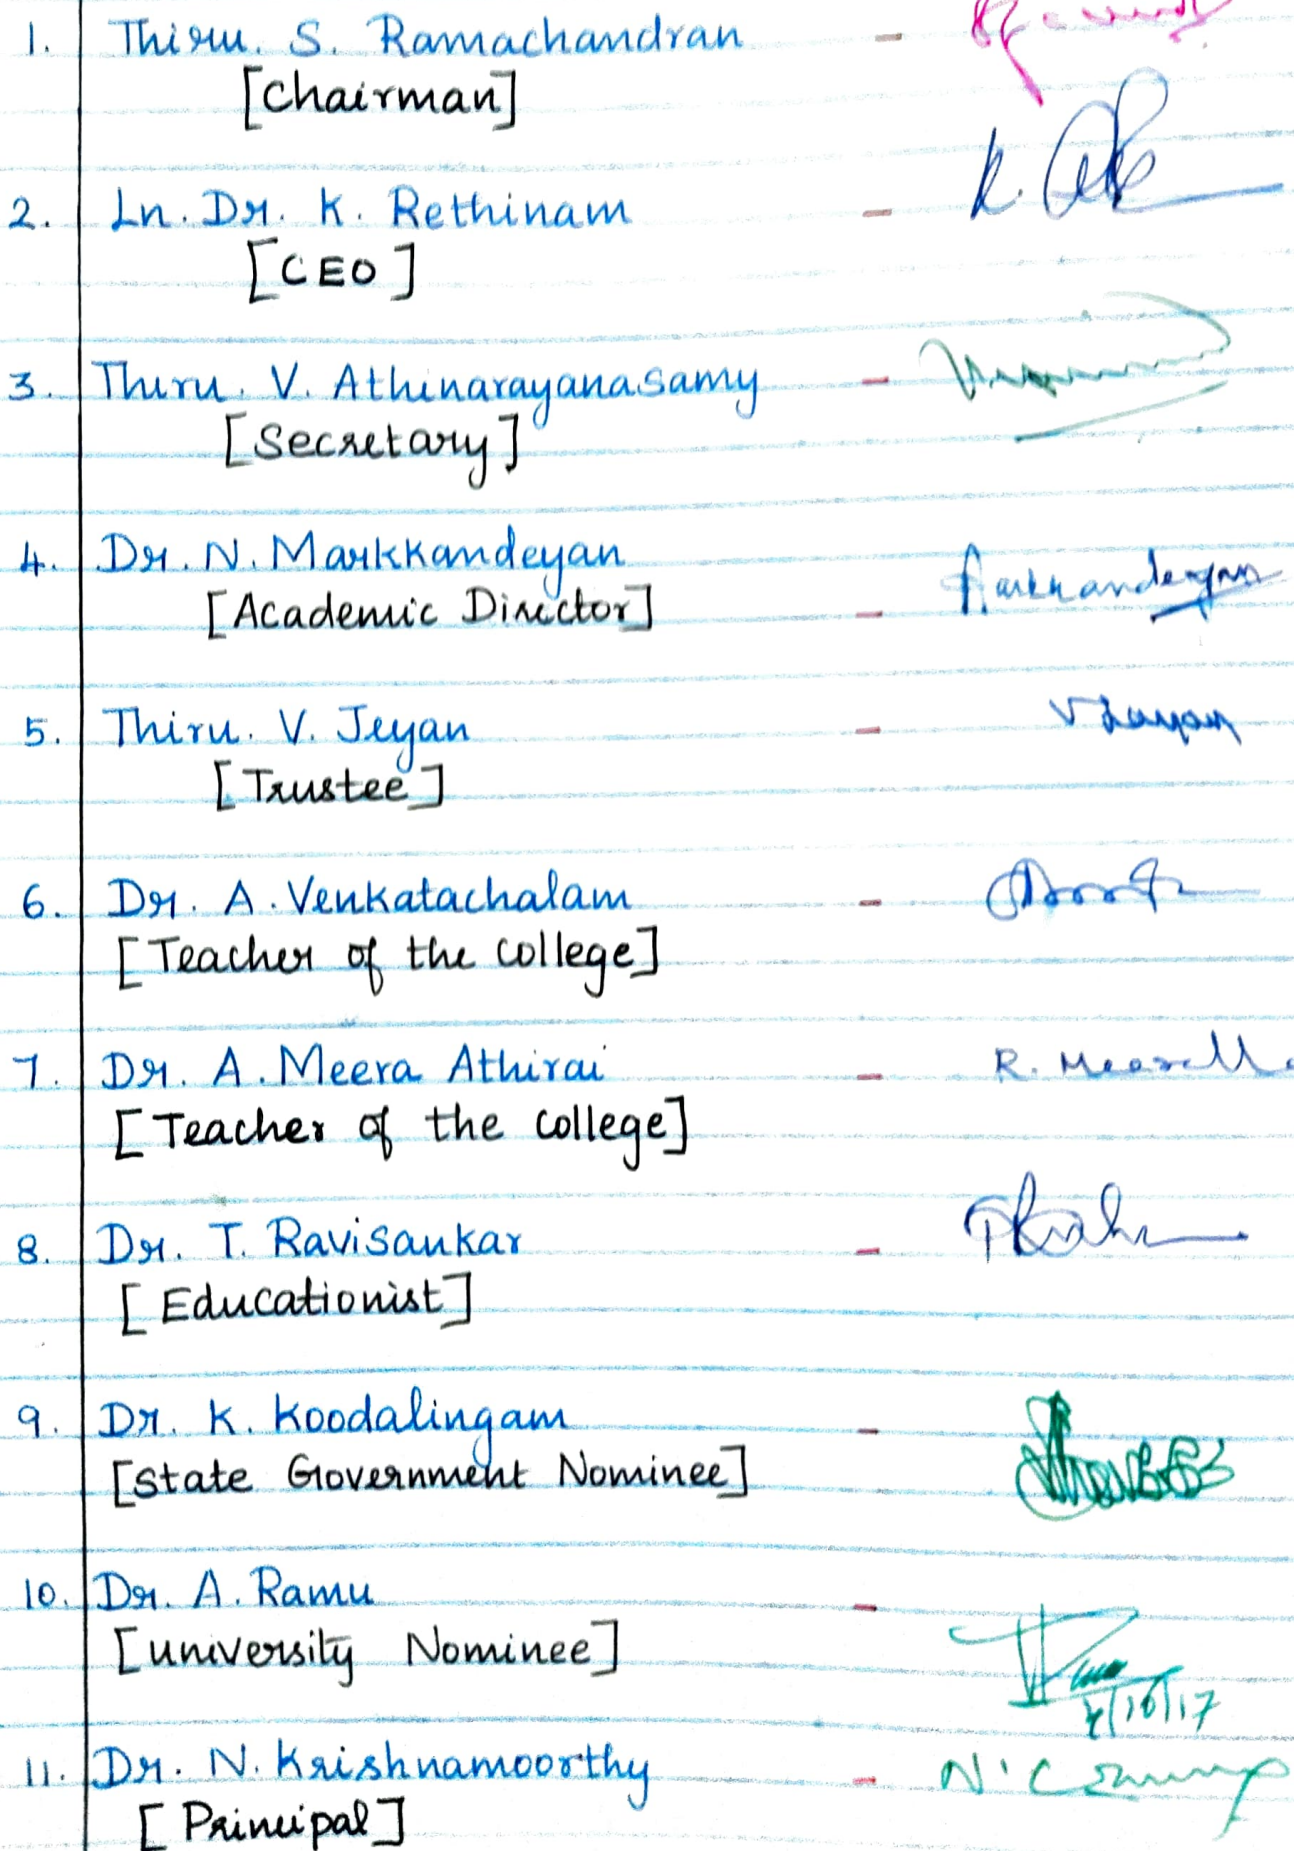 1. Thiru. S. Ramachandran -
[Chairman]
2. Ln. Dr. K. Rethinam - K.
[CEO]
3. Thiru. V. Athinarayanasamy -
[Secretary]
4. Dr. N. Markkandeyan
[Academic Director] - Markkandeyan
5. Thiru. V. Jeyan - V Jeyan
[Trustee]
6. Dr. A. Venkatachalam -
[Teacher of the college]
7. Dr. A. Meera Athirai - R.
[Teacher of the college]
8. Dr. T. Ravisankar -
[Educationist]
9. Dr. K. Koodalingam -
[State Government Nominee]
10. Dr. A. Ramu -
[University Nominee]
/10/17
11. Dr. N. Krishnamoorthy - N.
[Principal]